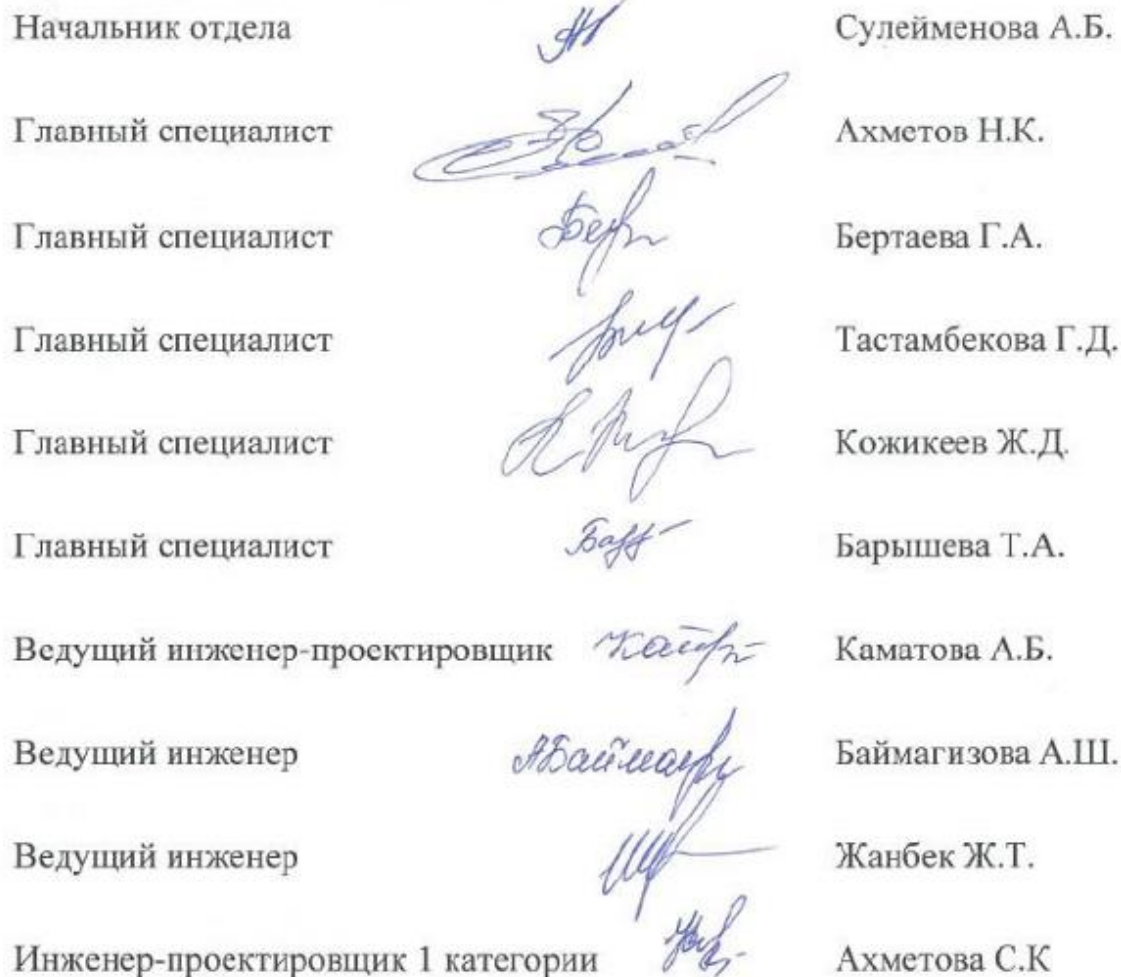 Начальник отдела Сулейменова А.Б.
Главный специалист Ахметов Н.К.
Главный специалист Бертаева Г.А.
Главный специалист Тастамбекова Г.Д.
Главный специалист Кожикеев Ж.Д.
Главный специалист Барышева Т.А.
Ведущий инженер-проектировщик Каматова А.Б.
Ведущий инженер Баймагизова А.Ш.
Ведущий инженер Жанбек Ж.Т.
Инженер-проектировщик 1 категории Ахметова С.К